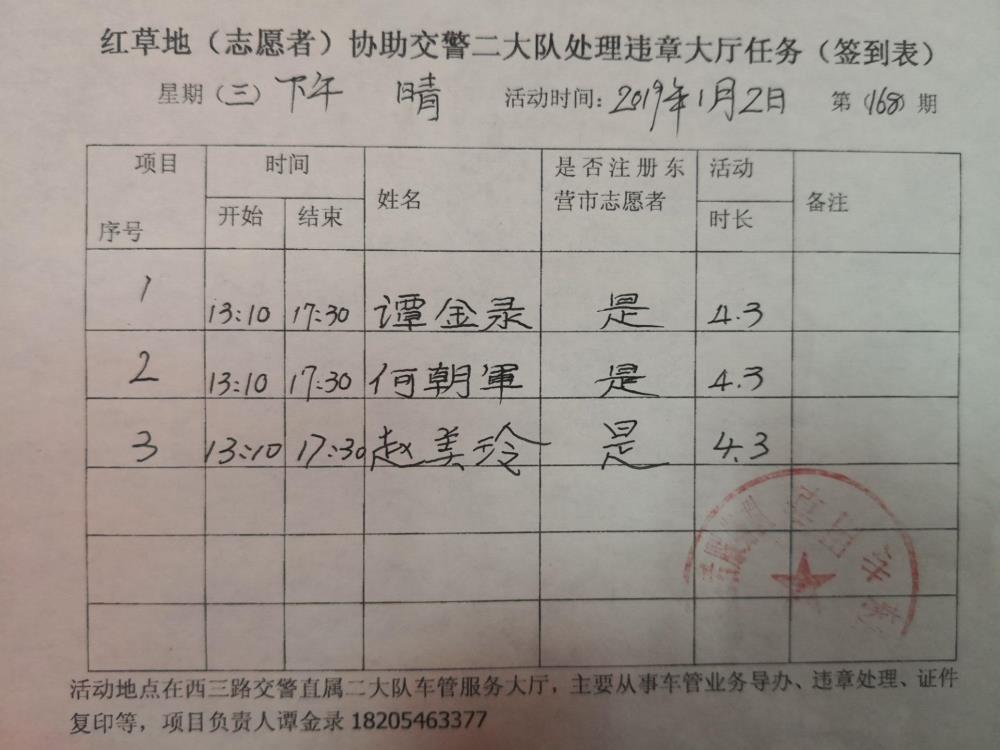 红草地（志愿者）协助交警二大队处理违章大厅任务（签到表）
星期（三）下午 晴 活动时间：2019年1月2日 第（168）期
项目 时间 姓名 是否注册东营市志愿者 活动时长 备注
序号 开始 结束
1 13:10 17:30 谭金录 是 4.3
2 13:10 17:30 何朝軍 是 4.3
3 13:10 17:30 赵美玲 是 4.3
活动地点在西三路交警直属二大队车管服务大厅，主要从事车管业务导办、违章处理、证件
复印等，项目负责人谭金录 18205463377